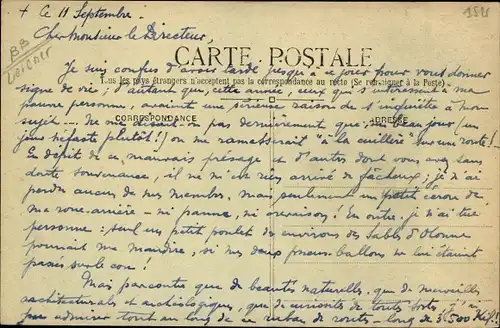 + Ce 11 Septembre.
1825
BB
Cher Monsieur le Directeur,
CARTE POSTALE
Tous les pays étrangers n'acceptent pas la correspondance au recto (Se renseigner à la Poste)
Je suis confus d'avoir tardé jusqu'à ce jour pour vous donner
signe de vie ; d'autant que, cette année, ceux qui s'intéressent à ma
pauvre personne, avaient une sérieuse raison de s'inquiéter à mon
sujet ... Ne me disait-on pas dernièrement que, un beau jour (un
CORRESPONDANCE
ADRESSE
jour néfaste plutôt !) on me ramasserait "à la cuillère" sur une route !
En dépit de ce mauvais présage et d'autres dont vous avez sans
doute souvenance, il ne m'est rien arrivé de fâcheux ; je n'ai
perdu aucun de mes membres, mais seulement un petit écrou de
ma roue-arrière – ni panne, ni crevaison ! En outre, je n'ai tué
personne : seul un petit poulet des environs des Sables d'Olonne
pourrait me maudire, si mes deux pneus-ballons ne lui étaient
passés sur le cou !
Mais par contre que de beautés naturelles, que de merveilles
architecturales et archéologiques, que de curiosités de toutes sortes, n'ai
pu admirer tout au long de ce ruban de route – long de 3.500 Kil.